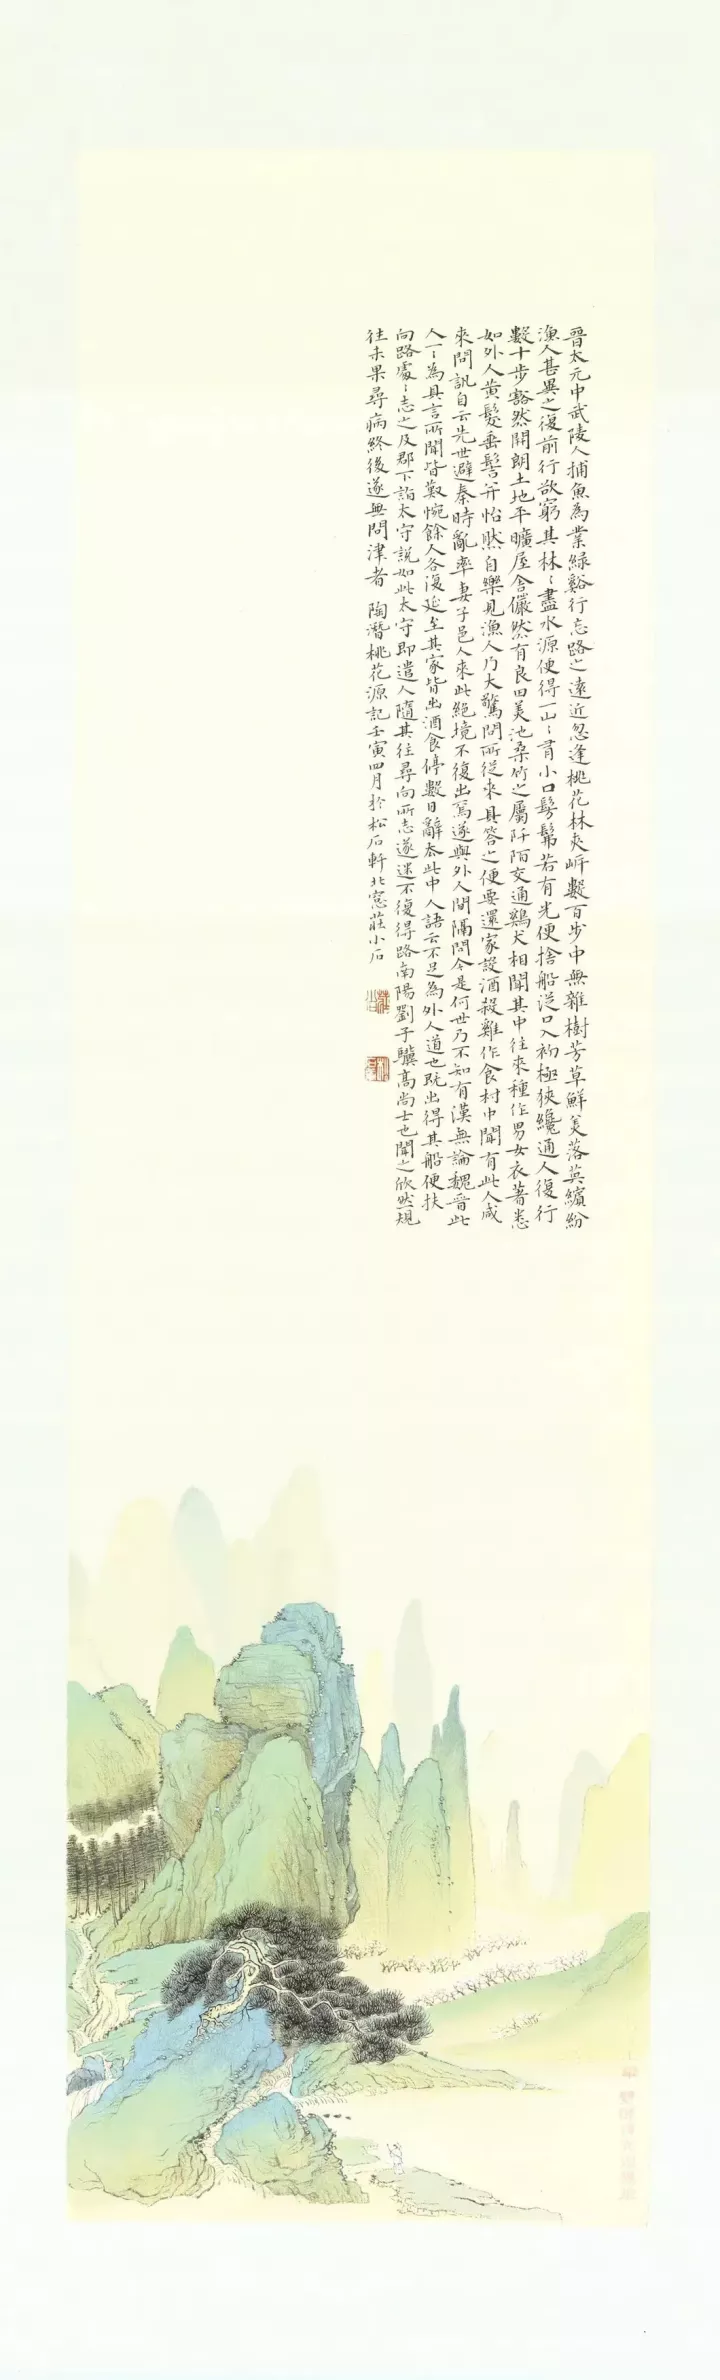 晉太元中武陵人捕魚為業緣谿行忘路之遠近忽逢桃花林夾岸數百步中無雜樹芳草鮮美落英繽紛
漁人甚異之復前行欲窮其林〻盡水源便得一山〻有小口髣髴若有光便捨船從口入初極狹纔通人復行
數十步豁然開朗土地平曠屋舍儼然有良田美池桑竹之屬阡陌交通鷄犬相聞其中往來種作男女衣著悉
如外人黃髮垂髫并怡然自樂見漁人乃大驚問所從來具答之便要還家設酒殺雞作食村中聞有此人咸
來問訊自云先世避秦時亂率妻子邑人來此絕境不復出焉遂與外人間隔問今是何世乃不知有漢無論魏晉此
人一〻為具言所聞皆歎惋餘人各復延至其家皆出酒食停數日辭去此中人語云不足為外人道也既出得其船便扶
向路處〻志之及郡下詣太守說如此太守即遣人隨其往尋向所志遂迷不復得路南陽劉子驥高尚士也聞之欣然規
往未果尋病終後遂無問津者 陶潛桃花源記壬寅四月於松石軒北窓莊小石